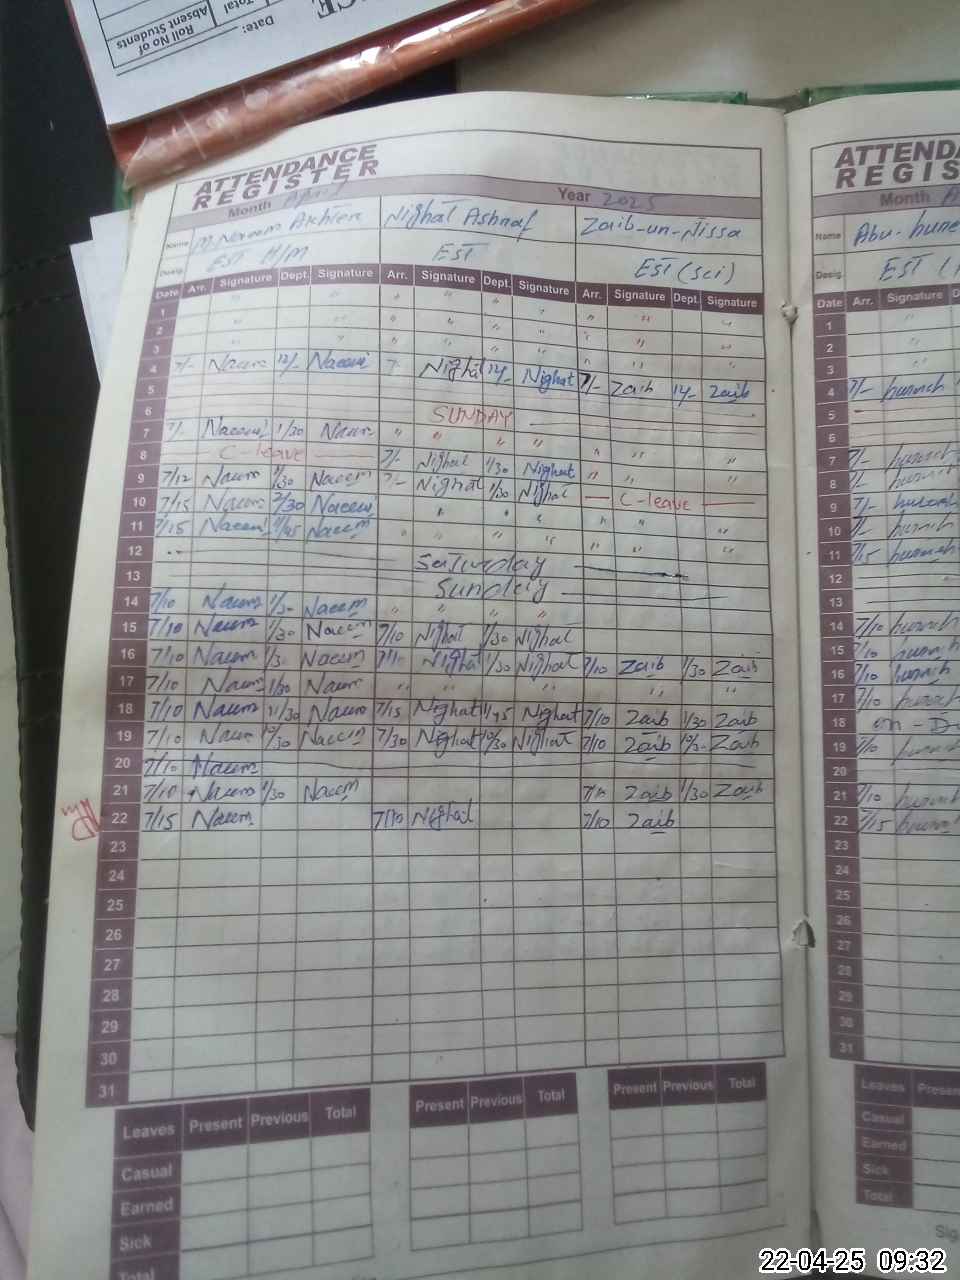 Roll No of
Absent Students
Total
Date:
ATTENDANCE
REGISTER
Month April Year 2025
Name M. Naeem Akhter Nighat Ashraf Zaib-un-Nissa
Desig. EST H/M EST EST (Sci)
Date Arr. Signature Dept. Signature Arr. Signature Dept. Signature Arr. Signature Dept. Signature
1 " " " " " " " "
2 " " " " " " " "
3 " " " " " " " "
4 7/- Naeem 12/- Naeem 7- Nighat 12/- Nighat 7/- Zaib 12/- Zaib
5
6 SUNDAY
7 7/- Naeem 1/30 Naeem " " " " " " "
8 C-leave 7/- Nighat 1/30 Nighat " " "
9 7/12 Naeem 1/30 Naeem 7/- Nighat 1/30 Nighat C-leave
10 7/15 Naeem 2/30 Naeem " " " " " "
11 7/15 Naeem 11/45 Naeem " " " " " "
12 Saturday
13 Sunday
14 7/10 Naeem 1/30 Naeem " " " "
15 7/10 Naeem 1/30 Naeem 7/10 Nighat 1/30 Nighat
16 7/10 Naeem 1/30 Naeem 7/10 Nighat 1/30 Nighat 7/10 Zaib 1/30 Zaib
17 7/10 Naeem 1/30 Naeem " " " " "
18 7/10 Naeem 11/30 Naeem 7/15 Nighat 11/45 Nighat 7/10 Zaib 1/30 Zaib
19 7/10 Naeem 10/30 Naeem 7/30 Nighat 10/30 Nighat 7/10 Zaib 10/30 Zaib
20 7/10 Naeem
21 7/10 Naeem 1/30 Naeem 7/10 Zaib 1/30 Zaib
22 7/15 Naeem 7/10 Nighat 7/10 Zaib
23
24
25
26
27
28
29
30
31
Leaves Present Previous Total Present Previous Total Present Previous Total
Casual
Earned
Sick
Total
ATTENDA
REGIS
Month
Name Abu-
Desig. EST
Date Arr. Signature
1 "
2 "
3 "
4 7/-
5
6
7 7/-
8 7/-
9 7/-
10 7/-
11 7/15
12
13
14 7/10
15 7/10
16 7/10
17 7/10
18 on - D
19
20
21 7/10
22 7/15
23
24
25
26
27
28
29
30
31
Leaves Prese
Casual
Earned
Sick
Total
Sig
22-04-25 09:32